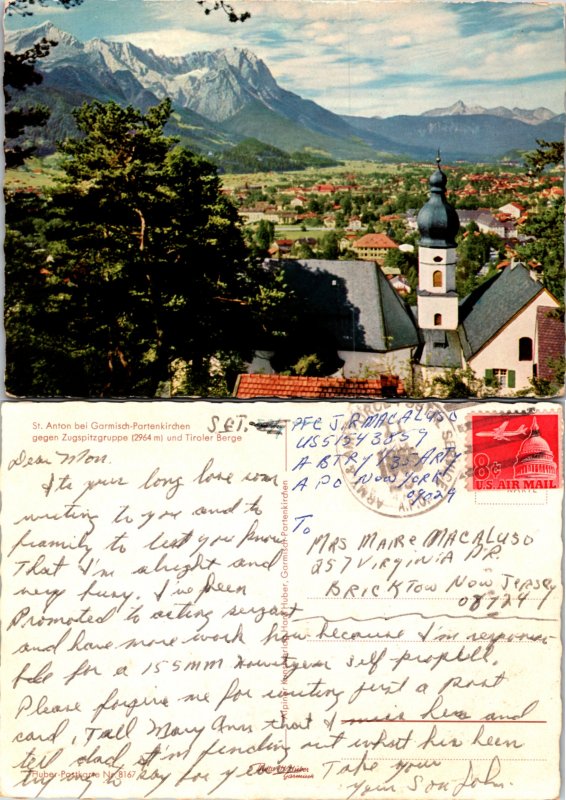 St. Anton bei Garmisch-Partenkirchen
gegen Zugspitzgruppe (2964 m) und Tiroler Berge
SGT.
PFC J.R MACALUSO
US51543859
A BTRY 3/35 ARTY
APO NEW YORK NY
09029
ARMY & AIR FORCE POSTAL SERVICE
8¢
U.S. AIR MAIL
To
MRS MARIE MACALUSO
257 VIRGINIA DR.
BRICKTOW NOW JERSEY
08724
Dear Mom.
Its your long love son
writing to you and to
framily to let you know
That I'm alright and
very busy. I've been
Promoted to acting sergant
and have more work how because I'm responsa-
ble for a 155MM Howitzer self propell.
Please forgive me for writing just a post
card, Tell Mary Ann that I miss her and
tell dad I'm finding out what his been
trying to say for years Take your
your Son John.
Alpiner Kunstverlag Hans Huber, Garmisch-Partenkirchen
Huber-Postkarte Nr. 8167
Hans Huber
GARMISCH